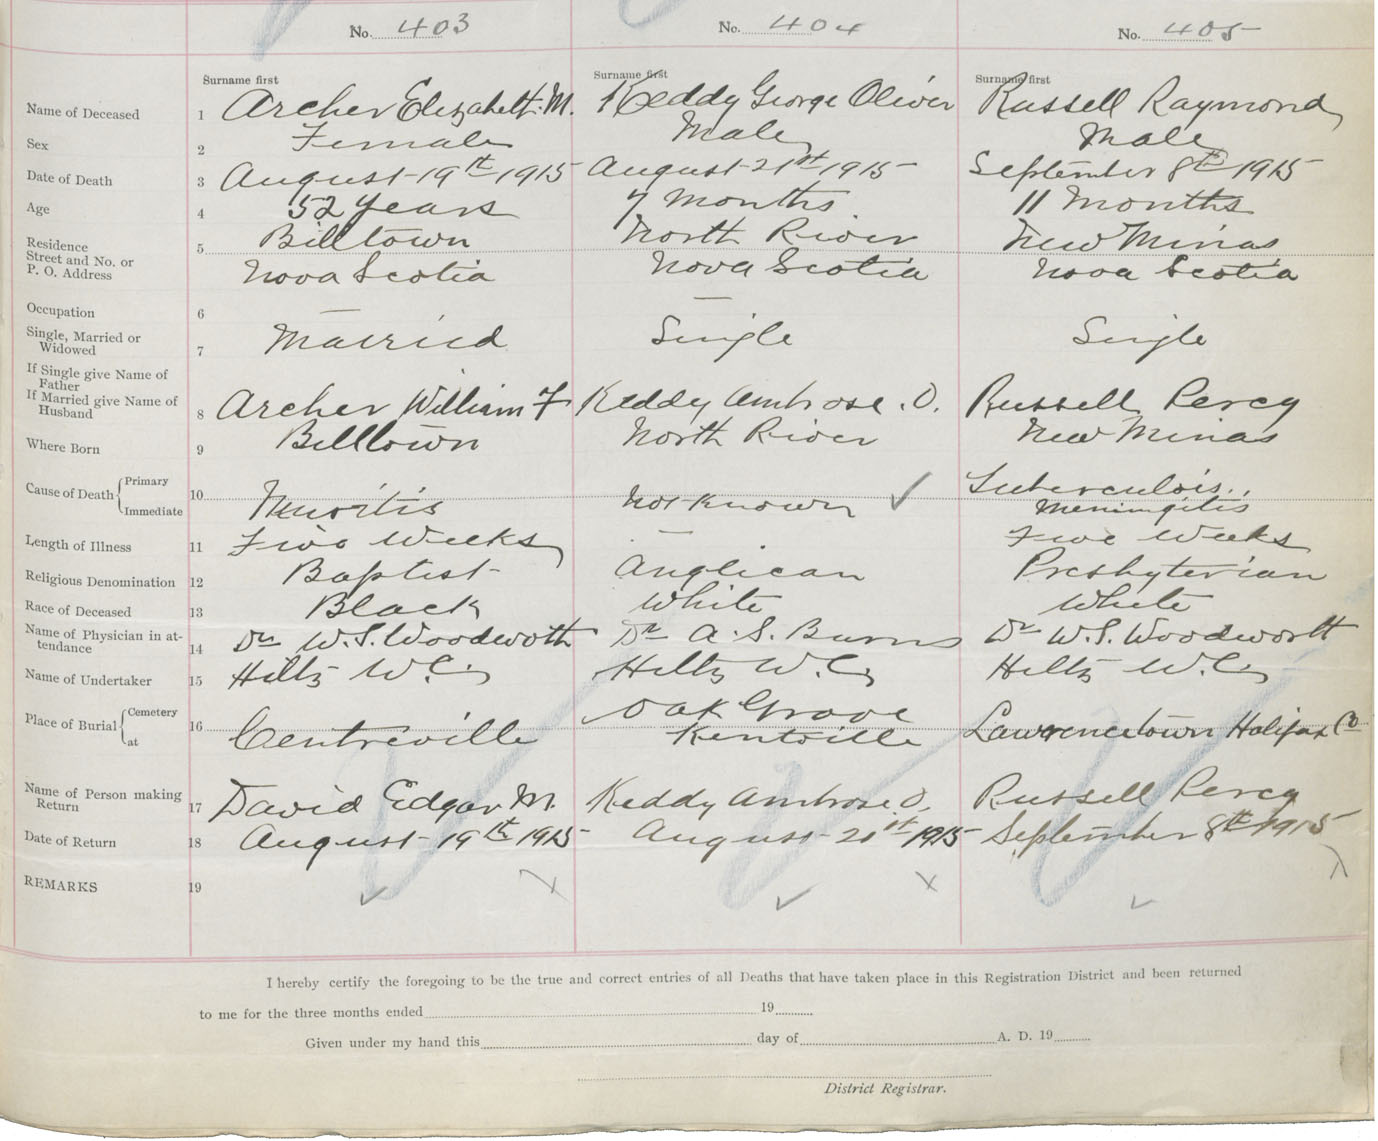 No. 403 No. 404 No. 405
Surname first Surname first Surname first
Name of Deceased 1 Archer Elizabeth. M. Keddy George Oliver Russell Raymond
Sex 2 Female Male Male
Date of Death 3 August 19th 1915 August 21st 1915 September 8th 1915
Age 4 52 Years 7 Months 11 Months
Residence Street and No. or P. O. Address 5 Billtown North River New Minas
Nova Scotia Nova Scotia Nova Scotia
Occupation 6 — —
Single, Married or Widowed 7 Married Single Single
If Single give Name of Father
If Married give Name of Husband 8 Archer William F Keddy Ambrose. O. Russell Percy
Where Born 9 Billtown North River New Minas
Cause of Death { Primary Tuberculois..
Immediate 10 Not Known ✓ Meningitis
Length of Illness 11 Five Weeks — Five Weeks
Religious Denomination 12 Baptist Anglican Presbyterian
Race of Deceased 13 Black White White
Name of Physician in attendance 14 Dr W.S. Woodworth Dr A. S. Burns Dr W.S. Woodworth
Name of Undertaker 15 Hiltz W.C. Hiltz W.C. Hiltz W.C.
Place of Burial { Cemetery Oak Grove
at 16 Centreville Kentville Lawrencetown Halifax Co
Name of Person making Return 17 David Edgar M. Keddy Ambrose O. Russell Percy
Date of Return 18 August 19th 1915 August 21st 1915 September 8th 1915
REMARKS 19 ✓ x ✓ x ✓ x
I hereby certify the foregoing to be the true and correct entries of all Deaths that have taken place in this Registration District and been returned
to me for the three months ended 19
Given under my hand this day of A. D. 19
District Registrar.